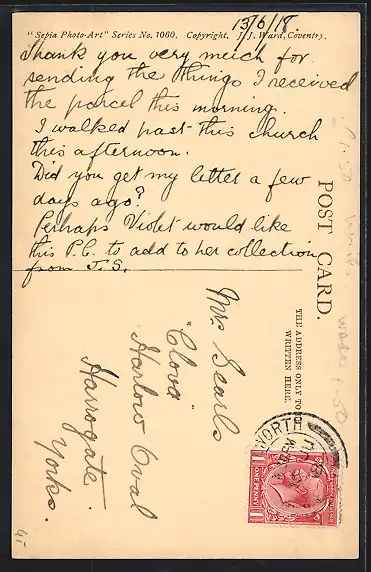 "Sepia Photo-Art" Series No. 1060. Copyright, J. J. Ward, Coventry.
13/6/18.
Thank you very much for
sending the things I received
the parcel this morning.
I walked past this church
this afternoon.
Did you get my letter a few
days ago?
Perhaps Violet would like
this P.C. to add to her collection
from J. S.
POST CARD.
THE ADDRESS ONLY TO BE
WRITTEN HERE.
Mrs Searls
"Clova"
Harlow Oval
Harrogate.
Yorks.
WORTH
ONE PENNY